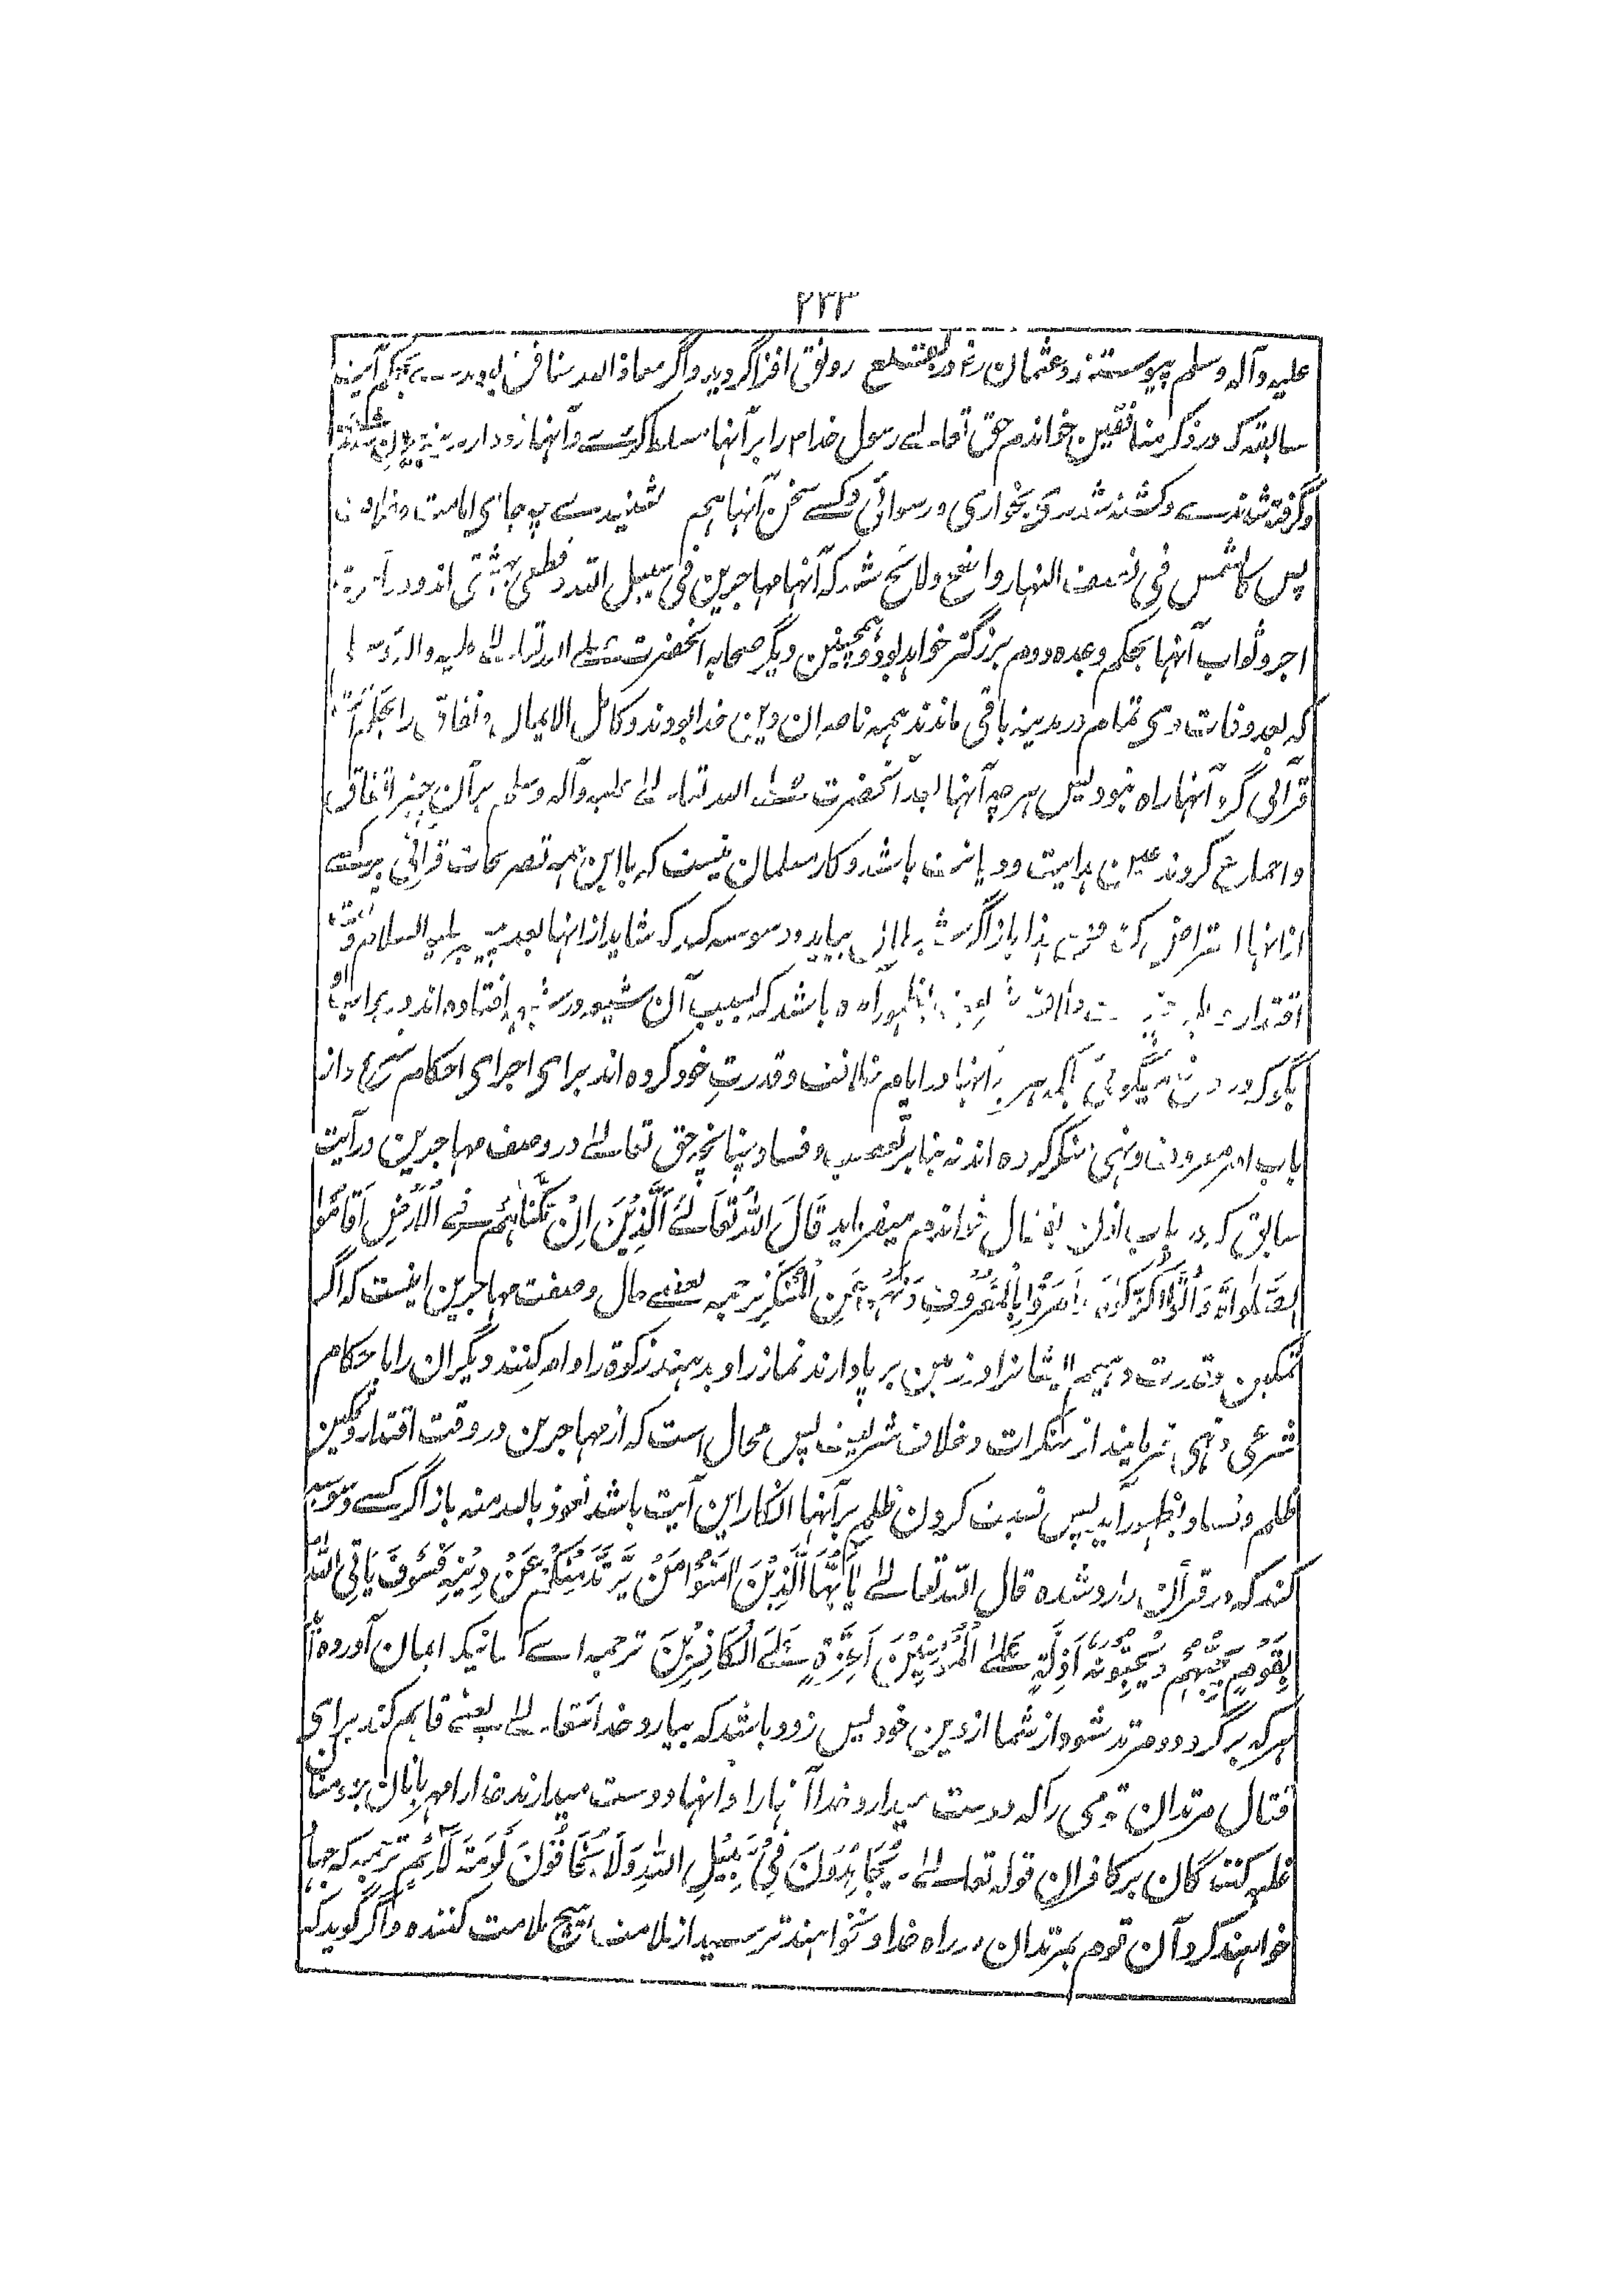 ۲۳۳
علیه وآله وسلم پیوستند وعثمان رض در بقیع رونق افزا گردید واگر معاذ الله منافق بودے بحکم آیه
سابقه که در ذکر منافقین خواندم حق تعالے رسول خدا را بر آنها مسلط کردے وآنها زود از مدینه
وگرفته شدندے وکشته شدندی بخواری ورسوائی وکسے سخن آنها هم نشنیدے چه جای امامت وخلافت
پس کالشمس فی نصف النهار واضح ولائح شد که آنها مهاجرین فی سبیل الله وقطعی بهشتی اند ودر آخرت
اجر وثواب آنها بحکم وعده دوم بزرگتر خواهد بود وهمچنین دیگر صحابه آنحضرت صلے الله تعالے علیه وآله وسلم
که بعد وفات وی تمام در مدینه باقی ماندند همه ناصران دین خدا بودند وکامل الایمان ونفاق را بحکم
قرآنی گرد آنها راه نبود پس هرچه آنها بعد آنحضرت صلے الله تعالے علیه وآله وسلم بر آن چیز اتفاق
واجماع کردند عین هدایت ودیانت باشد وکار مسلمان نیست که با این همه تصریحات قرآنی بر کسے
از انها اعتراض کند باز اگر شیطان بیاید ووسوسه کند که شاید از انها بعد پیغمبر علیه السلام وقت
اقتدار بظهور آمده باشد که بسبب آن شیعه در شبهه افتاده اند در جواب او
بگو که انها در ایام خلافت وقدرت خود کرده اند برای اجرای احکام شرع واز
باب امر معروف ونهی منکر کرده اند نه بنابر تعصب وفساد چنانچه حق تعالے در وصف مهاجرین در آیت
سابق که در باب اذن بقتال خواندم میفرماید قَالَ اللّٰهُ تَعَالٰے اَلَّذِیْنَ اِنْ مَّکَّنّٰاهُمْ فِے الْاَرْضِ اَقَامُوا
الصَّلٰوةَ وَاٰتَوُا الزَّکٰوةَ وَاَمَرُوْا بِالْمَعْرُوْفِ وَنَهَوْا عَنِ الْمُنْکَرِ ترجمه یعنے حال وصفت مهاجرین اینست که اگر
تمکین وقدرت دهیم ایشانرا در زمین برپا دارند نماز را وبدهند زکوة را وامر کنند دیگران را باحکام
شرعی ونهی فرمایند از منکرات وخلاف شریعت پس محال است که از مهاجرین در وقت اقتدار وتمکین
ظلم وفساد بظهور آید پس نسبت کردن ظلم بر آنها انکار این آیت باشد نعوذ بالله منه باز اگر کسے وسوسه
کند که در قرآن وارد شده قال الله تعالے یٰاَیُّهَا الَّذِیْنَ اٰمَنُوْا مَنْ یَّرْتَدَّ مِنْکُمْ عَنْ دِیْنِهٖ فَسَوْفَ یَاْتِی اللّٰهُ
بِقَوْمٍ یُّحِبُّهُمْ وَیُحِبُّوْنَهٗ اَذِلَّةٍ عَلَے الْمُؤْمِنِیْنَ اَعِزَّةٍ عَلَے الْکَافِرِیْنَ ترجمه اے کسانیکه ایمان آورده اند
هر که برگردد ومرتد شود از شما از دین خود پس زود باشد که بیارد خدا تعالے یعنے قائم کند برای
قتال مرتدان قومی را که دوست میدارد خدا آنها را وآنها دوست میدارند خدا را مهربانان بر مومنان
غلبه کنندگان بر کافران قوله تعالے یُجَاهِدُوْنَ فِیْ سَبِیْلِ اللّٰهِ وَلَا یَخَافُوْنَ لَوْمَةَ لَائِمٍ ترجمه که جهاد
خواهند کرد آن قوم بمرتدان در راه خدا ونخواهند ترسید از ملامت هیچ ملامت کننده واگر گوید که